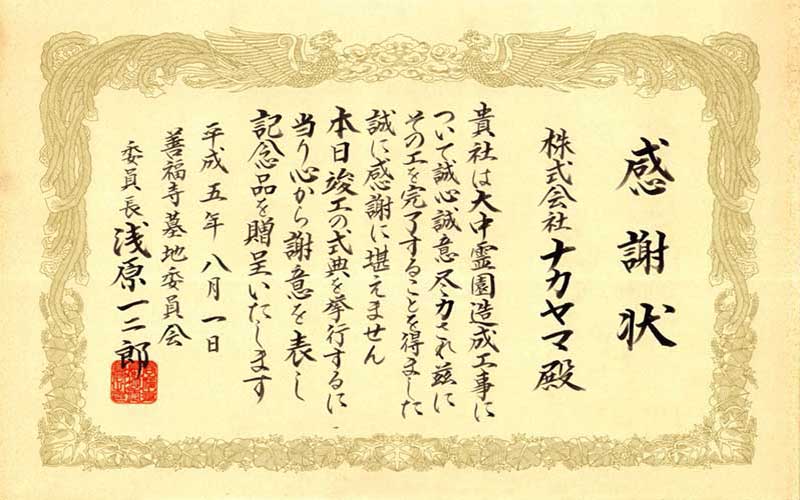 感謝状
株式会社ナカヤマ殿
貴社は大中霊園造成工事に
ついて誠心誠意尽力され玆に
その工を完了することを得ました
誠に感謝に堪えません
本日竣工の式典を挙行するに
当り心から謝意を表し
記念品を贈呈いたします
平成五年八月一日
善福寺墓地委員会
委員長浅原一二郎